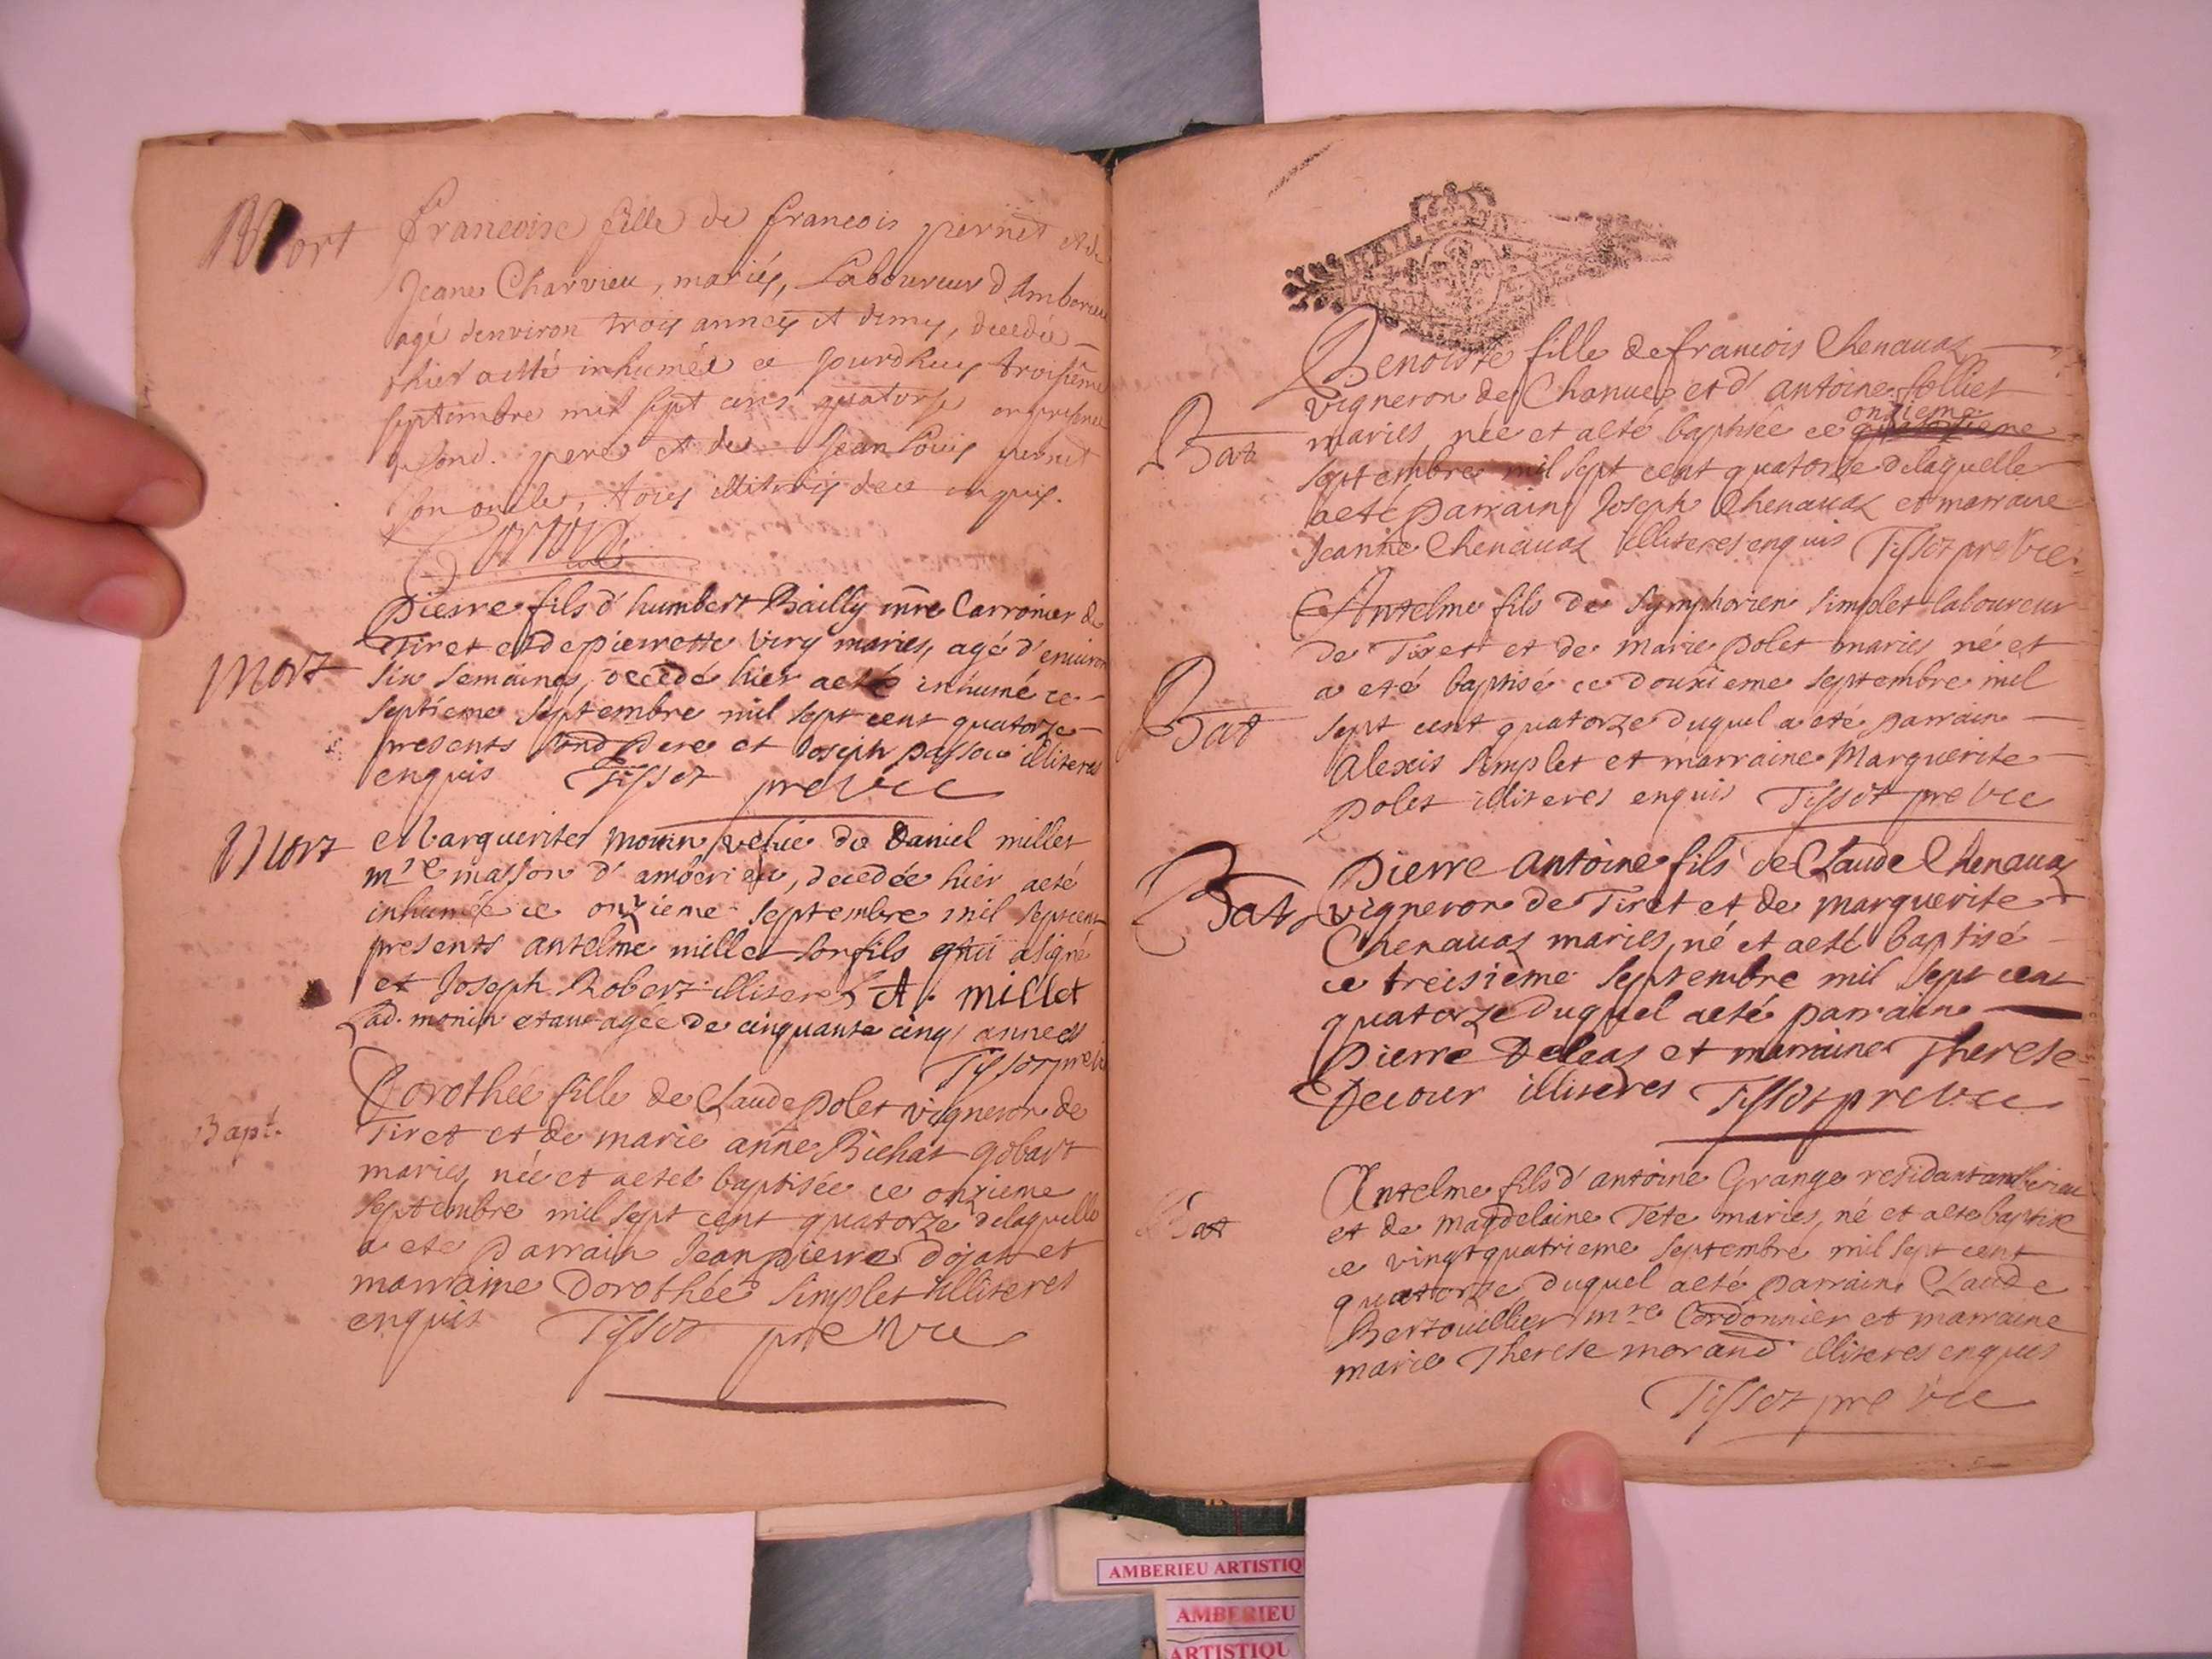 Mort
francoise fille de francois pernet et de
Jeane Charvieu, mariés, Laboureur d'Amberieu
agé denviron trois annés et demy, decedée
hier a esté inhumée ce Jourdhuy troisième
septembre mil sept cens quatorse en presence
dud. pere et de Jean Louis pernet
son oncle, tous illiterés de ce enquis.
Mort
Pierre fils d'humbert Bailly mre Carronier de
Tiret et de pierrette Viry mariés, agé d'environ
six semaines, decedé hier aeté inhumé ce
septième septembre mil sept cent quatorze
presents sond pere et Joseph passou illiteres
enquis Tissot pre vic
Mort
Marguerite monin vefue de Daniel millet
mre masson d'amberieu, decedée hier aeté
inhumée ce onzieme septembre mil septcent
presents antelme millet son fils qui asigné
et Joseph Robert illiteres A. millet
lad. monin etant agée de cinquante cinq années
Tissot pre vic
Bapt.
Dorothée fille de Claude polet vigneron de
Tiret et de marie anne Bichat gobart
mariés, née et aeteé baptisée ce onzieme
septembre mil sept cent quatorze delaquelle
a eté parrain Jean pierre dojat et
marraine Dorothée Simplet illiteres
enquis Tissot pre vic
Bat
Benoiste fille de francois Chenauaz
vigneron de Chanues et d'antoine follier
onzieme
mariés, née et aeté baptisée ce quatorzieme
septembre mil sept cent quatorse delaquelle
aeté parrain Joseph Chenauaz et marraine
Jeanne Chenauaz illiteres enquis Tissot pre vic
Bat
Antelme fils de Symphorien Simplet laboureur
de Tiret et de marie polet mariés né et
a eté baptisé ce douzieme septembre mil
sept cent quatorze duquel a eté parrain
Alexis Simplet et marraine Marguerite
polet illiteres enquis Tissot pre vic
Bat
Pierre antoine fils de Claude Chenauaz
vigneron de Tiret et de marguerite
Chenauaz mariés, né et aeté baptisé
ce treisieme septembre mil sept cent
quatorze duquel aeté parrain
pierre Deleaz et marraine Therese
Decour illiteres Tissot pre vic
Bat
Antelme fils d'antoine Grange residant amberieu
et de Magdelaine Tete mariés, né et aeté baptisé
ce vingt quatrieme septembre mil sept cent
quatorze duquel aeté parrain Claude
Bertouillier mre Cordonnier et marraine
marie Therese morand illiteres enquis
Tissot pre vic
AMBERIEU ARTISTIQ
AMBERIEU
ARTISTIQU